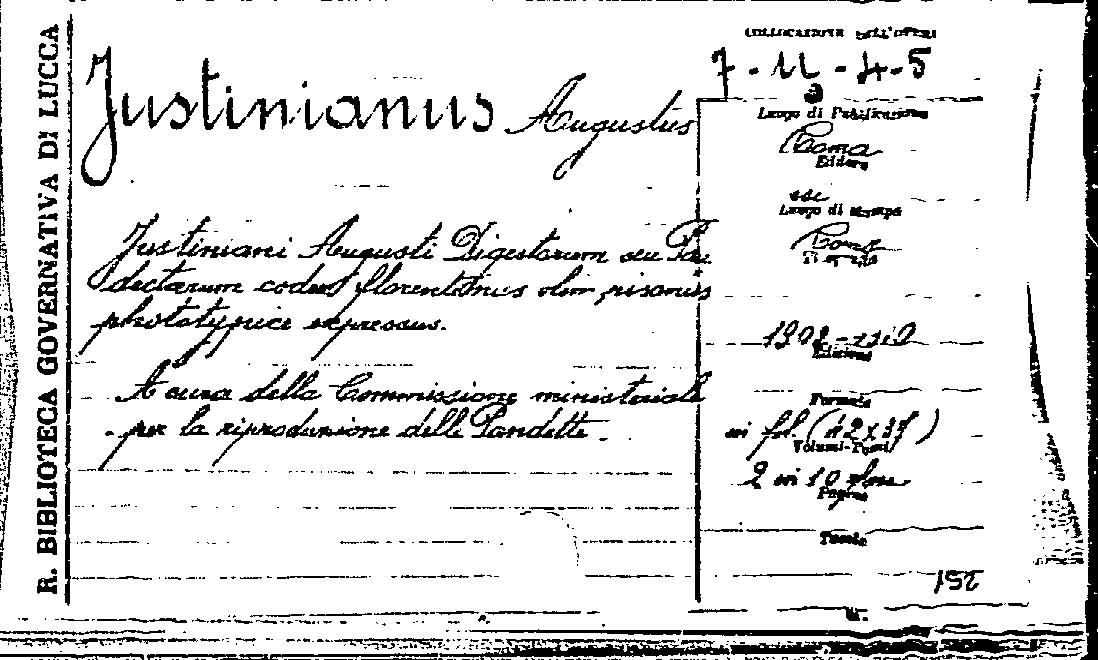 R. BIBLIOTECA GOVERNATIVA DI LUCCA
Justinianus Augustus
Justiniani Augusti Digestorum seu Pan
dectarum codex florentinus olim pisanus
phototypice expressus.
A cura della Commissione ministeriale
per la riproduzione delle Pandette.
COLLOCAZIONE DELL'OPERA
7-11-4-5
Luogo di Pubblicazione
Roma
Editore
Luogo di stampa
Roma
Tipografia
1902-1910
Edizione
Formato
in fol. (42x37)
Volumi-Tomi
2 in 10
Pagine
Tavole
152